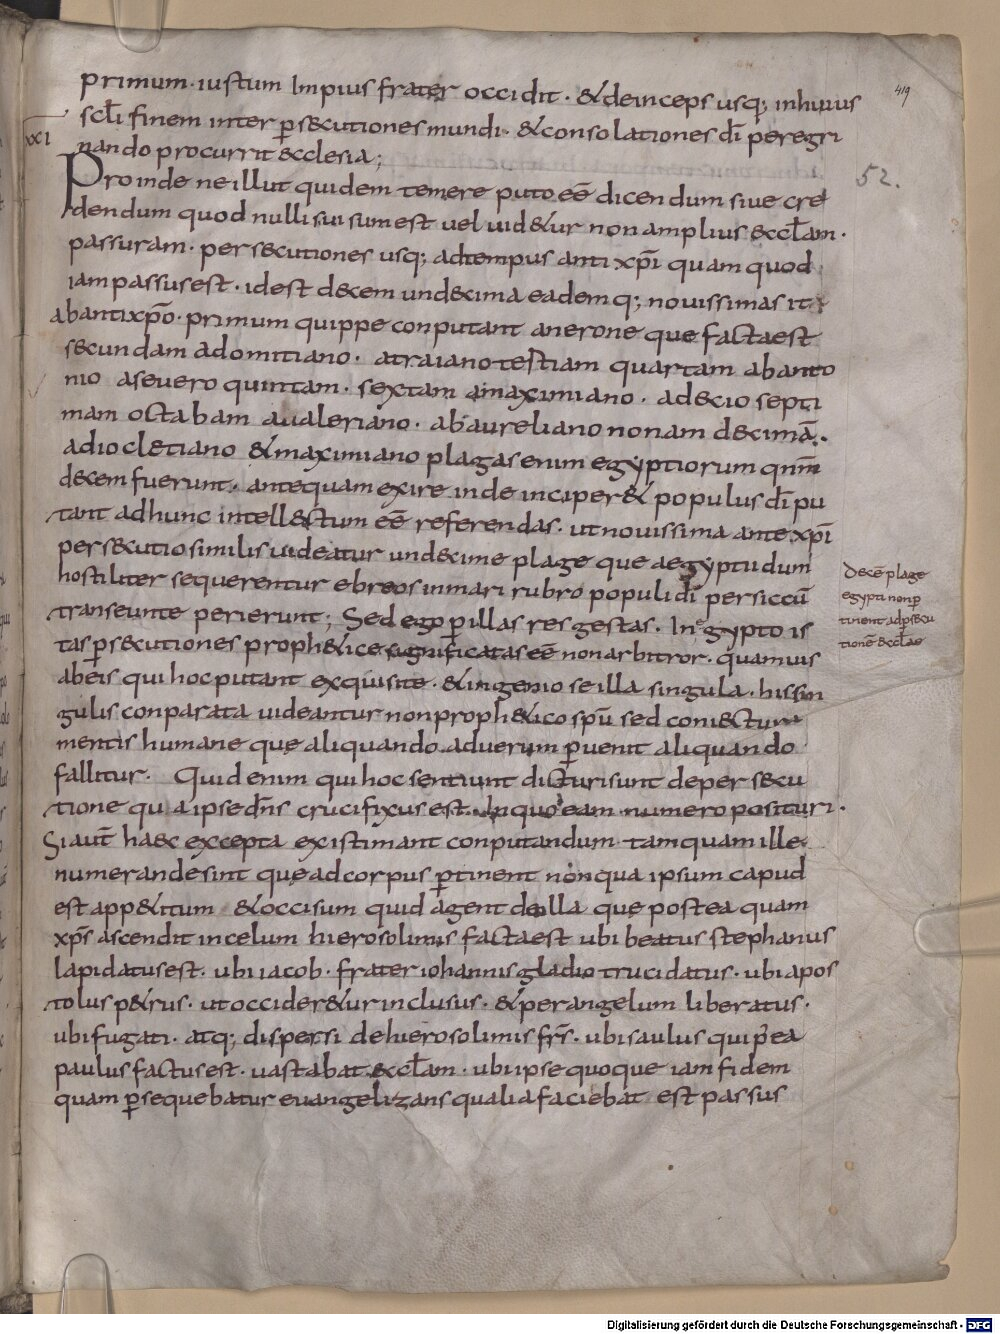 419
primum · iustum Impius frater occidit · &deinceps usq; inhuius
scłi finem inter p̱secutiones mundi · &consolationes dī peregri
nando procurrit ecclesia;
xxi
52.
Proinde ne illut quidem temere puto eē dicendum siue cre
dendum quod nulli sui sum est uel uid&ur non amplius ęccłam ·
passuram · persecutiones usq; adtempus antixp̄i quam quod
iam passus est · idest decem undecima eademq; nouissima sit
abantixp̄o · primum quippe conputant anerone que facta est
secundam adomitiano · atraiano testiam quartam abanto
nio aseuero quintam · sextam amaximiano · adecio septi
mam octabam aualeriano · abaureliano nonam decimā ·
adiocletiano &maximiano plagas enim egyptiorum qnm̄
decem fuerunt · antequam exire inde inciper& populus dī pu
tant adhunc intellectum eē referendas · ut nouissima antexp̄i
persecutio similis uideatur undecime plage que aegyptii dum
hostiliter sequerentur ebreos in mari rubro populi dī per siccū
transeunte perierunt; Sed ego p̱ illas res gestas · In egypto is
tas p̱secutiones proph&ice significatas eē non arbitror · quamuis
abeis qui hoc putant exquisite · &ingenio se illa singula · his sin
gulis conparata uideantur non proph&ico sp̄u sed coniectura
mentis humane que aliquando aduerum p̱uenit aliquando
fallitur · Quid enim qui hoc sentiunt dicturi sunt de persecu
tione qua ipse dn̄s crucifixus est · In quo eam numero posituri ·
Si aut̄ haec excepta existimant conputandum tamquam ille
numerande sint que ad corpus p̱tinent non qua ipsum capud
est app&itum &occisum quid agent de illa que postea quam
xp̄s ascendit in celum hierosolimis facta est ubi beatus stephanus
lapidatus est · ubi iacob · frater iohannis gladio trucidatus · ubi apos
tolus p&rus · ut occider&ur inclusus · &per angelum liberatus ·
ubi fugati · atq; dispersi de hierosolimis frs̄ · ubi saulus qui p̱ea
paulus factus est · uastabat ęccłam · ubi ipse quoque iam fidem
quam p̱sequebatur euangelizans qualia faciebat est passus
Decē plage
egypti non p̱
tinent adp̱secu
tionē ęccłae
Digitalisierung gefördert durch die Deutsche Forschungsgemeinschaft - DFG